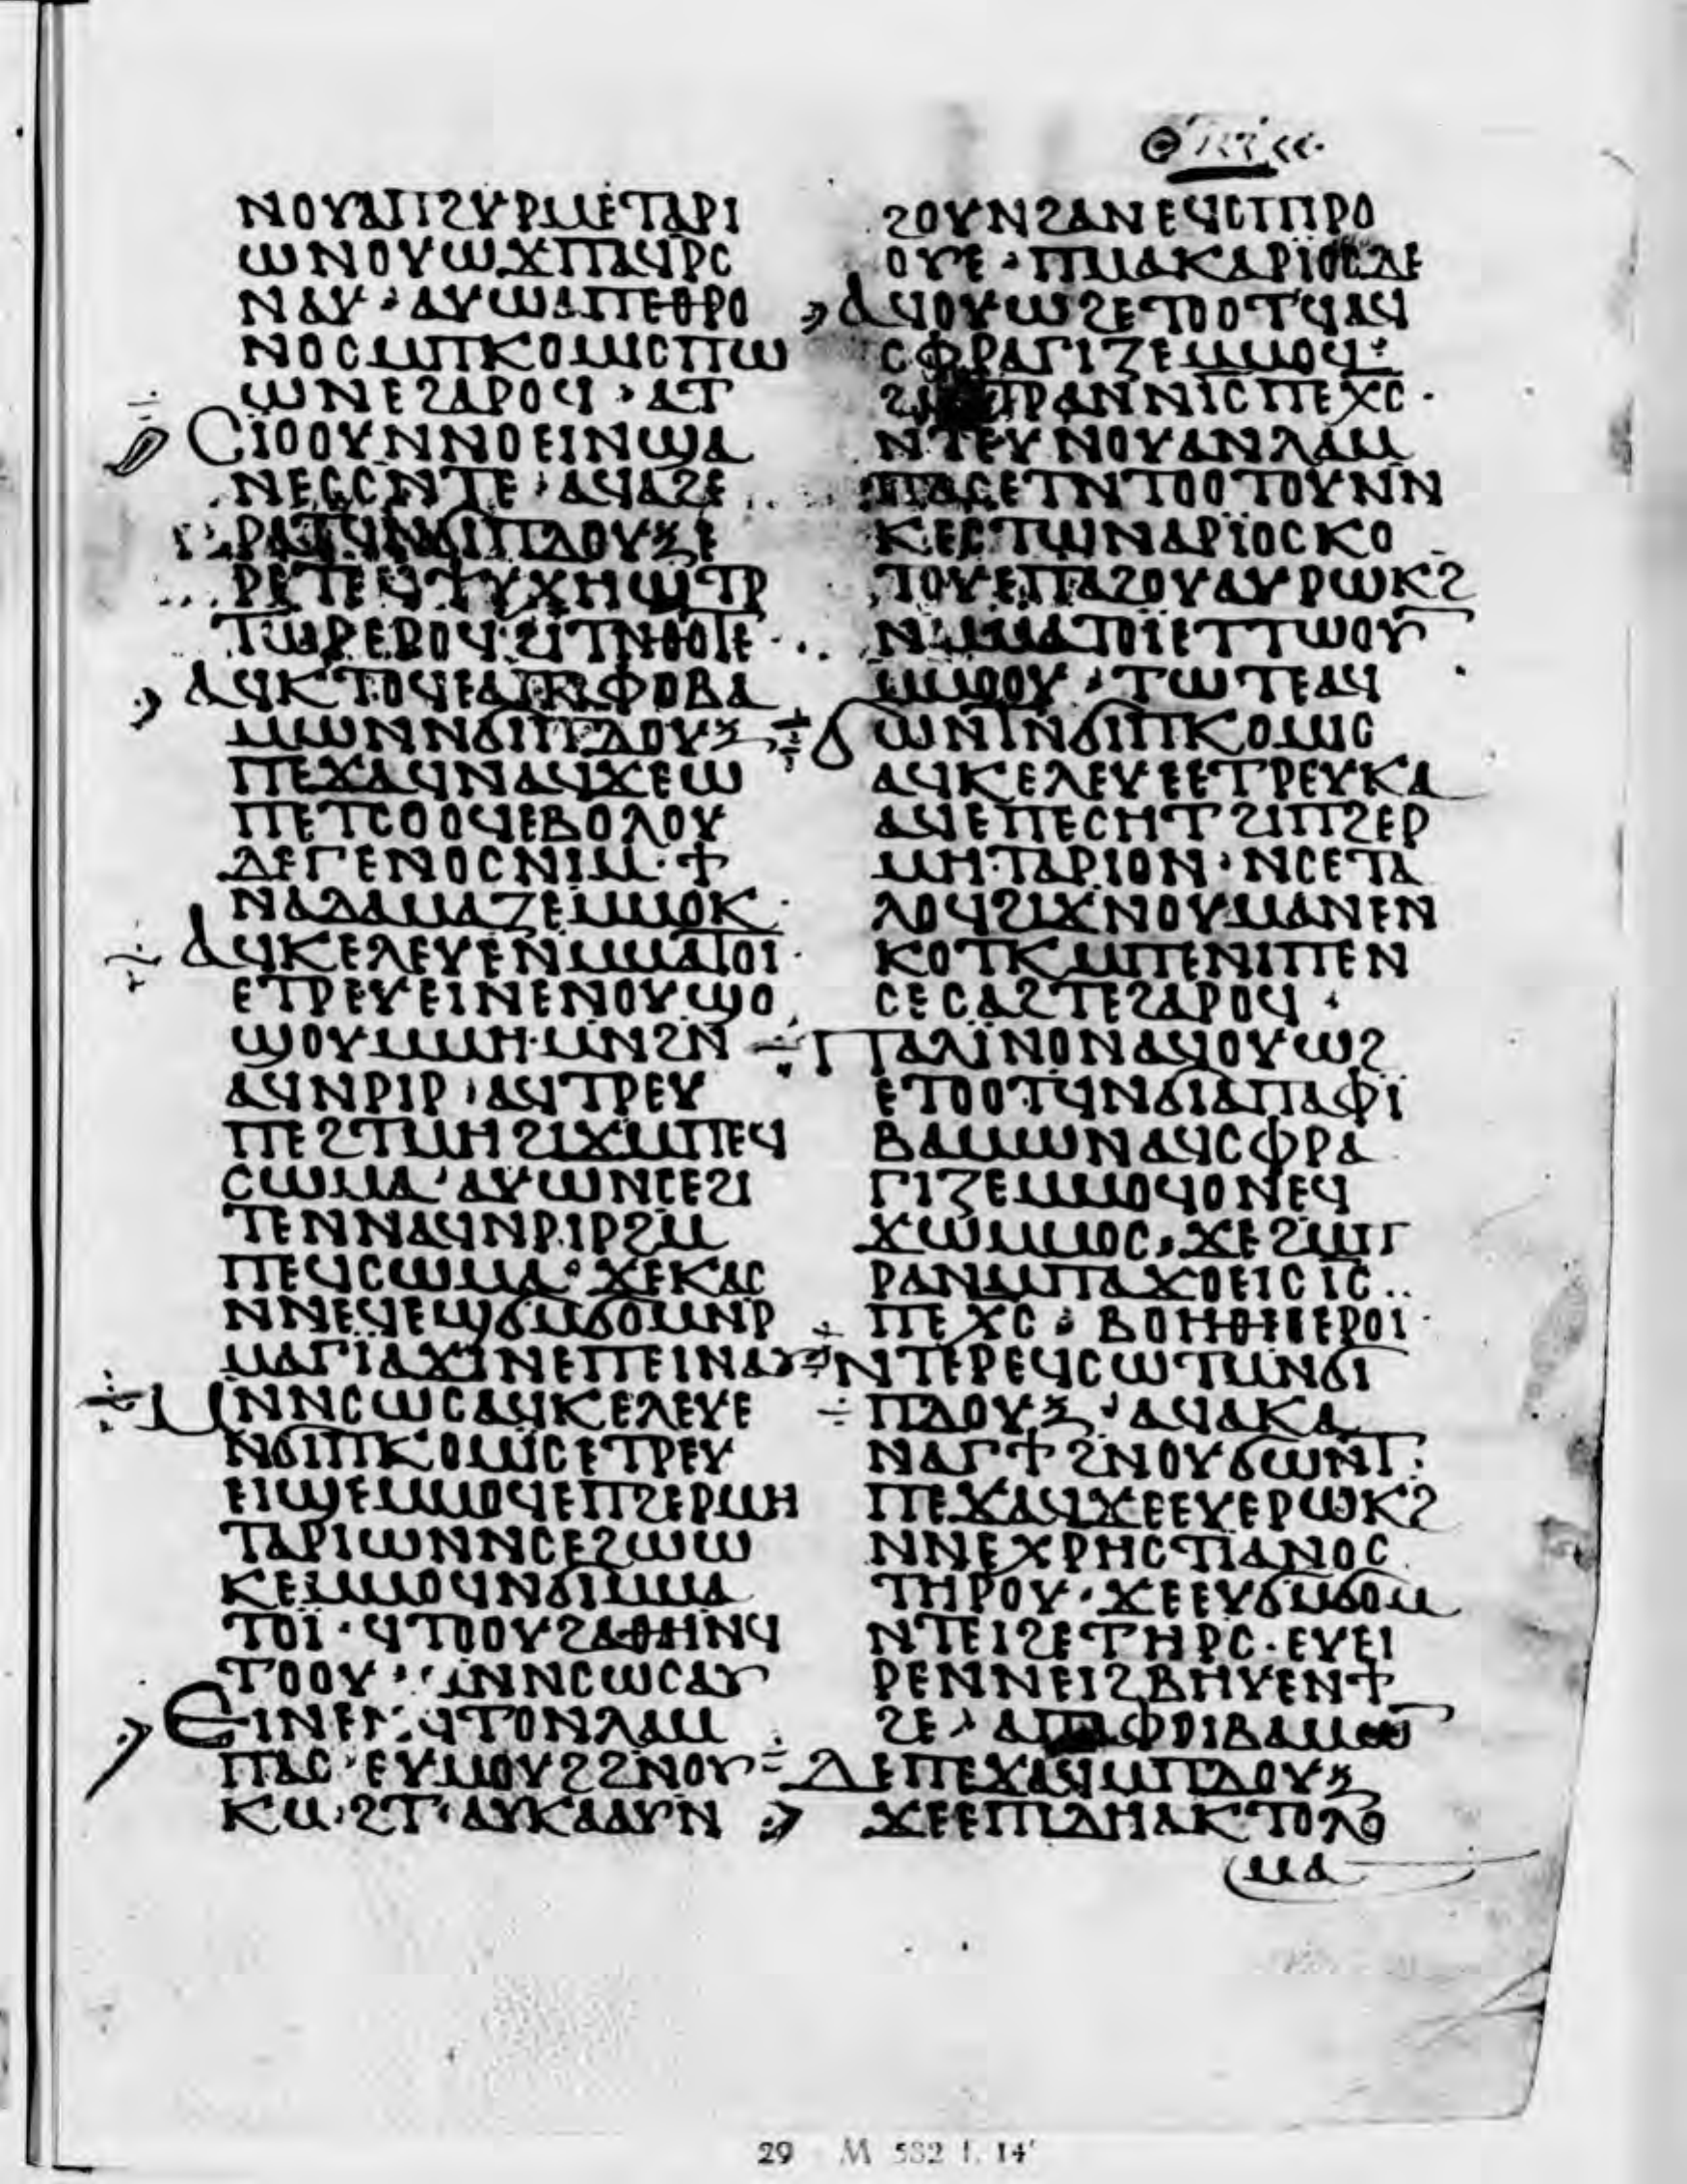 ⲛⲟⲩⲁⲡϩⲩⲣⲙⲉⲧⲁⲣⲓ
ⲱⲛⲟⲩⲱϫⲡⲁϥⲣⲥ
ⲛⲁⲩ· ⲁⲩⲱⲁⲡⲉⲑⲣⲟ
ⲛⲟⲥⲙⲡⲕⲟⲙⲓⲥⲡⲱ
ⲱⲛⲉϩⲁⲣⲟϥ· ⲁⲧ
ⲥⲓⲟⲟⲩⲛⲛⲟⲉⲓⲛϣⲁ
ⲛⲉⲥⲥⲛⲧⲉ· ⲁϥⲁϩⲉ
ⲣⲁⲧϥⲛϭⲓⲡⲇⲟⲩⲝⲉ
ⲣⲉⲧⲉϥⲯⲩⲭⲏϣⲧⲣ
ⲧⲱⲣⲉⲣⲟϥϩⲓⲧⲛⲑⲟⲧⲉ
ⲁϥⲕⲧⲟϥⲉⲁⲡⲁⲫⲟⲃⲁ
ⲙⲱⲛⲛϭⲓⲡⲇⲟⲩⲝ
ⲡⲉϫⲁϥⲛⲁϥϫⲉⲱ
ⲡⲉⲧⲥⲟⲟϥⲉⲃⲟⲗⲟⲩ
ⲇⲉⲅⲉⲛⲟⲥⲛⲓⲙ· ϯ
ⲛⲁⲇⲁⲙⲁⲍⲉⲙⲙⲟⲕ·
ⲁϥⲕⲉⲗⲉⲩⲉⲛⲙⲙⲁⲧⲟⲓ·
ⲉⲧⲣⲉⲩⲉⲓⲛⲉⲛⲟⲩϣⲟ
ϣⲟⲩⲙⲙⲏ·ⲙⲛϩⲛ
ⲁϥⲛⲣⲓⲣ· ⲁϥⲧⲣⲉⲩ
ⲡⲉϩⲧⲙⲏϩⲓϫⲙⲡⲉϥ
ⲥⲱⲙⲁ· ⲁⲩⲱⲛⲥⲉϩⲓ
ⲧⲉⲛⲛⲁϥⲛⲣⲓⲣϩⲙ
ⲡⲉϥⲥⲱⲙⲁ· ϫⲉⲕⲁⲥ
ⲛⲛⲉϥⲉϣϭⲙϭⲟⲙⲛⲣ
ⲙⲁⲅⲓⲁϫⲓⲛⲉⲡⲉⲓⲛⲁⲩ
ⲙⲛⲛⲥⲱⲥⲁϥⲕⲉⲗⲉⲩⲉ
ⲛϭⲓⲡⲕⲟⲙⲓⲥⲉⲧⲣⲉⲩ
ⲉⲓϣⲉⲙⲙⲟϥⲉⲡϩⲉⲣⲙⲏ
ⲧⲁⲣⲓⲱⲛⲛⲥⲉϩⲱⲱ
ⲕⲉⲙⲙⲟϥⲛϭⲓⲙⲙⲁ
ⲧⲟⲓ· ϥⲧⲟⲟⲩϩⲁⲑⲏⲛϥ
ⲧⲟⲟⲩ· ⲙⲛⲛⲥⲱⲥⲁⲩ
ⲉⲓⲛⲉⲛϥⲧⲟⲛⲗⲁⲙ
ⲡⲁⲥ· ⲉⲩⲙⲟⲩϩϩⲛⲟⲩ
ⲕⲱ·ϩⲧ· ⲁⲩⲕⲁⲁⲩⲛ
ϩⲟⲩⲛϩⲁⲛⲉϥⲥⲡⲓⲣⲟ
ⲟⲩⲉ· ⲡⲙⲁⲕⲁⲣⲓⲟⲥⲇⲉ
ⲁϥⲟⲩⲱϩⲉⲧⲟⲟⲧϥⲁϥ
ⲥⲫⲣⲁⲅⲓⲍⲉⲙⲙⲟϥ·
ϩⲙⲡⲣⲁⲛⲛⲓⲥⲡⲉⲭⲥ·
ⲛⲧⲉⲩⲛⲟⲩⲁⲛⲗⲁⲙ
ⲡⲁⲥⲉⲧⲛⲧⲟⲟⲧⲟⲩⲛⲛ
ⲕⲉⲥⲧⲱⲛⲁⲣⲓⲟⲥⲕⲟ
ⲧⲟⲩⲉⲡⲁϩⲟⲩⲁⲩⲣⲱⲕϩ
ⲛⲙⲙⲁⲧⲟⲓⲉⲧⲧⲱⲟⲩⲛ
ⲙⲙⲟⲟⲩ· ⲧⲱⲧⲉⲁϥ
ϭⲱⲛⲧⲛϭⲓⲡⲕⲟⲙⲓⲥ
ⲁϥⲕⲉⲗⲉⲩⲉⲉⲧⲣⲉⲩⲕⲁ
ⲁϥⲉⲡⲉⲥⲏⲧϩⲓⲡϩⲉⲣ
ⲙⲏ·ⲧⲁⲣⲓⲟⲛ· ⲛⲥⲉⲧⲁ
ⲗⲟϥϩⲓϫⲛⲟⲩⲙⲁⲛⲉⲛ
ⲕⲟⲧⲕⲙⲡⲉⲛⲓⲡⲉⲛ
ⲥⲉⲥⲁϩⲧⲉϩⲁⲣⲟϥ·
ⲡⲁⲗⲓⲛⲟⲛⲁϥⲟⲩⲱϩ
ⲉⲧⲟⲟⲧϥⲛϭⲓⲁⲡⲁⲫⲓ
ⲃⲁⲙⲱⲛⲁϥⲥⲫⲣⲁ
ⲅⲓⲍⲉⲙⲙⲟϥⲟⲛⲉϥ
ϫⲱⲙⲙⲟⲥ· ϫⲉϩⲙⲡ
ⲣⲁⲛⲙⲡⲁϫⲟⲉⲓⲥⲓⲥ..
ⲡⲉⲭⲥ· ⲃⲟⲏⲑⲓⲉⲣⲟⲓ·
ⲛⲧⲉⲣⲉϥⲥⲱⲧⲙⲛϭⲓ
ⲡⲇⲟⲩⲝ· ⲁϥⲁⲕⲁ
ⲛⲁⲅϯϩⲛⲟⲩϭⲱⲛⲧ·
ⲡⲉϫⲁϥϫⲉⲉⲩⲉⲣⲱⲕϩ
ⲛⲛⲉⲭⲣⲏⲥⲧⲓⲁⲛⲟⲥ
ⲧⲏⲣⲟⲩ· ϫⲉⲉⲩϭⲙϭⲟⲙ
ⲛⲧⲉⲓϩⲉⲧⲏⲣⲥ· ⲉⲩⲉⲓ
ⲣⲉⲛⲛⲉⲓϩⲃⲏⲩⲉⲛϯ
ϩⲉ· ⲁⲡⲁⲫⲟⲓⲃⲁⲙⲱ
ⲇⲉⲡⲉϫⲁϥⲙⲡⲇⲟⲩⲝ
ϫⲉⲉⲡⲓⲇⲏⲁⲕⲧⲟⲗ
ⲙⲁ
29 M 582 f. 14ʳ